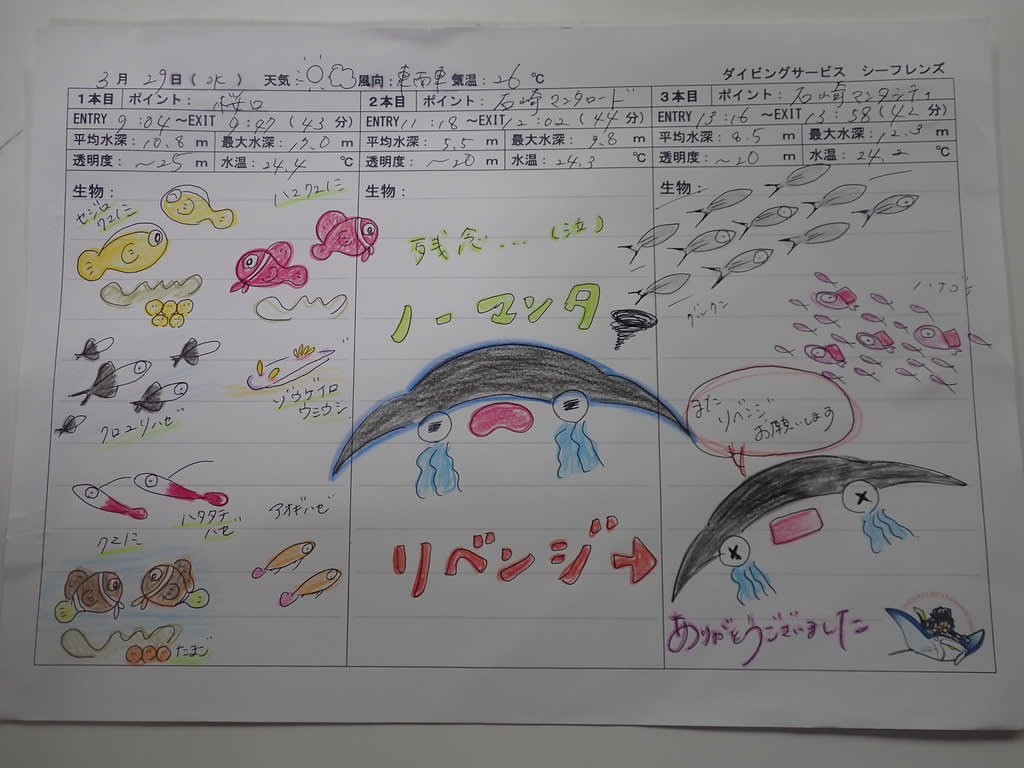 ダイビングサービス シーフレンズ
3月 29日(水) 天気: 風向: 東南東 気温: 26℃
1本目 ポイント: 桜口
ENTRY 9:04 ～EXIT 9:47 (43分)
平均水深: 10.8m 最大水深: 17.0m
透明度: ～25m 水温: 24.4℃
生物:
セジロクマノミ
ハマクマノミ
クロユリハゼ
ゾウゲイロ
ウミウシ
ハタタテ
ハゼ
アオギハゼ
クマノミ
たまご
2本目 ポイント: 石崎マンタロード
ENTRY 11:18 ～EXIT 12:02 (44分)
平均水深: 5.5m 最大水深: 9.8m
透明度: ～20m 水温: 24.3℃
生物:
残念...(泣)
ノーマンタ
リベンジ→
3本目 ポイント: 石崎マンタシティ
ENTRY 13:16 ～EXIT 13:58 (42分)
平均水深: 8.5m 最大水深: 12.3m
透明度: ～20m 水温: 24.2℃
生物:
グルクン
ハナゴイ
また
リベンジ
お願いします
ありがとうございました